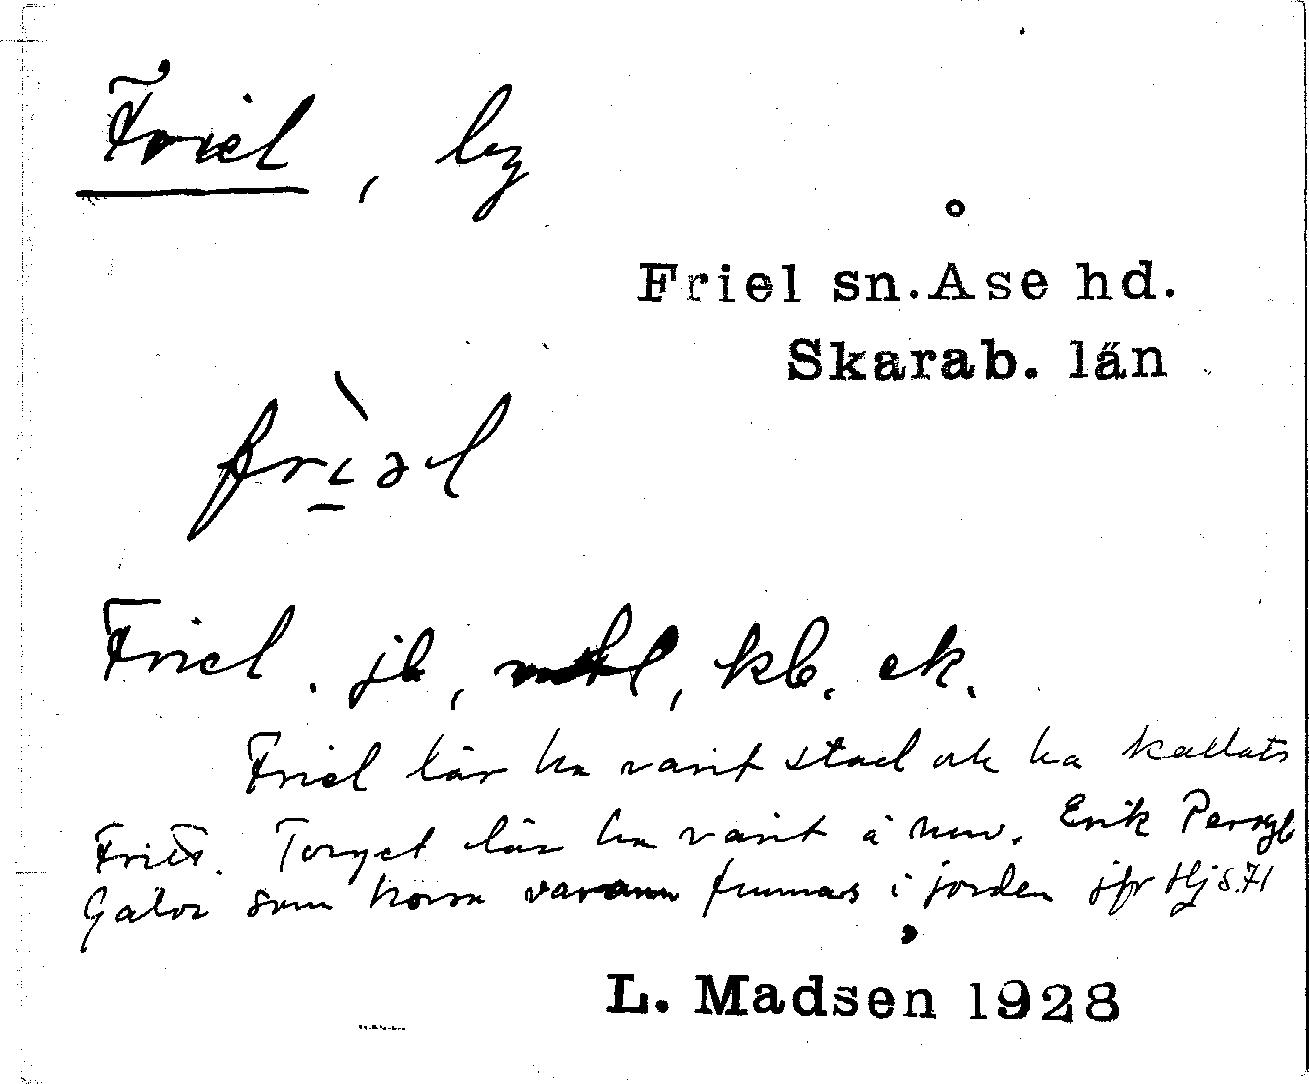 Friel, by
Friel sn. Åse hd.
Skarab. län
frìəl
Friel. jb, kb. ek.
Friel lär ha varit stad och ha kallats
Torget lär ha varit å nuv. Erik Pers
Gator som korsa varann finnas i jorden jfr Hj s. 71
L. Madsen 1928